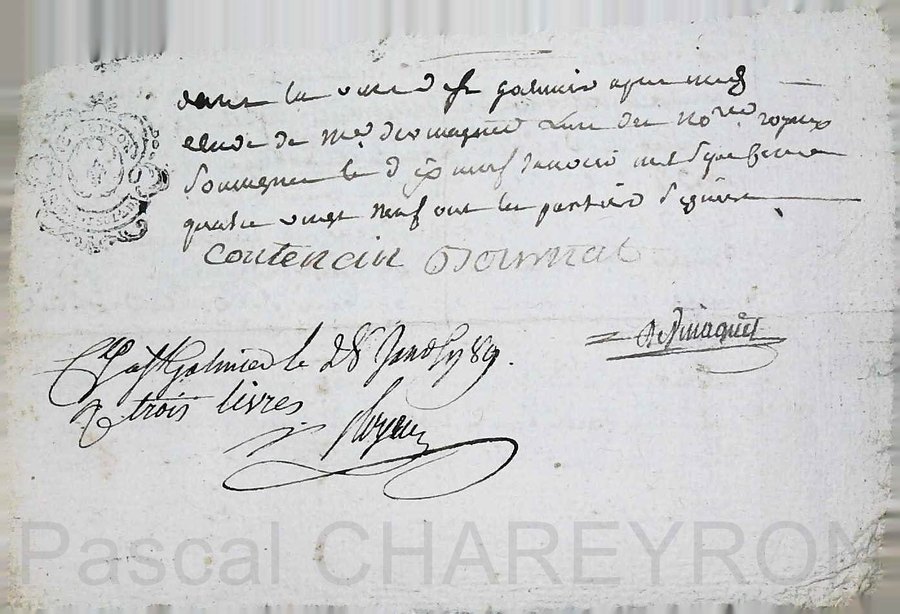 dans la ville de st galmier apres midy
etude de me desmaques l'un des nores royaux
soussignes le dix neuf janvier mil sept cent
quatre vingt neuf ont les parties signé
Contencin Journal
Desmaques
Cé a St Galmier le 28 Janv 1789.
R trois livres
Pascal CHAREYRON